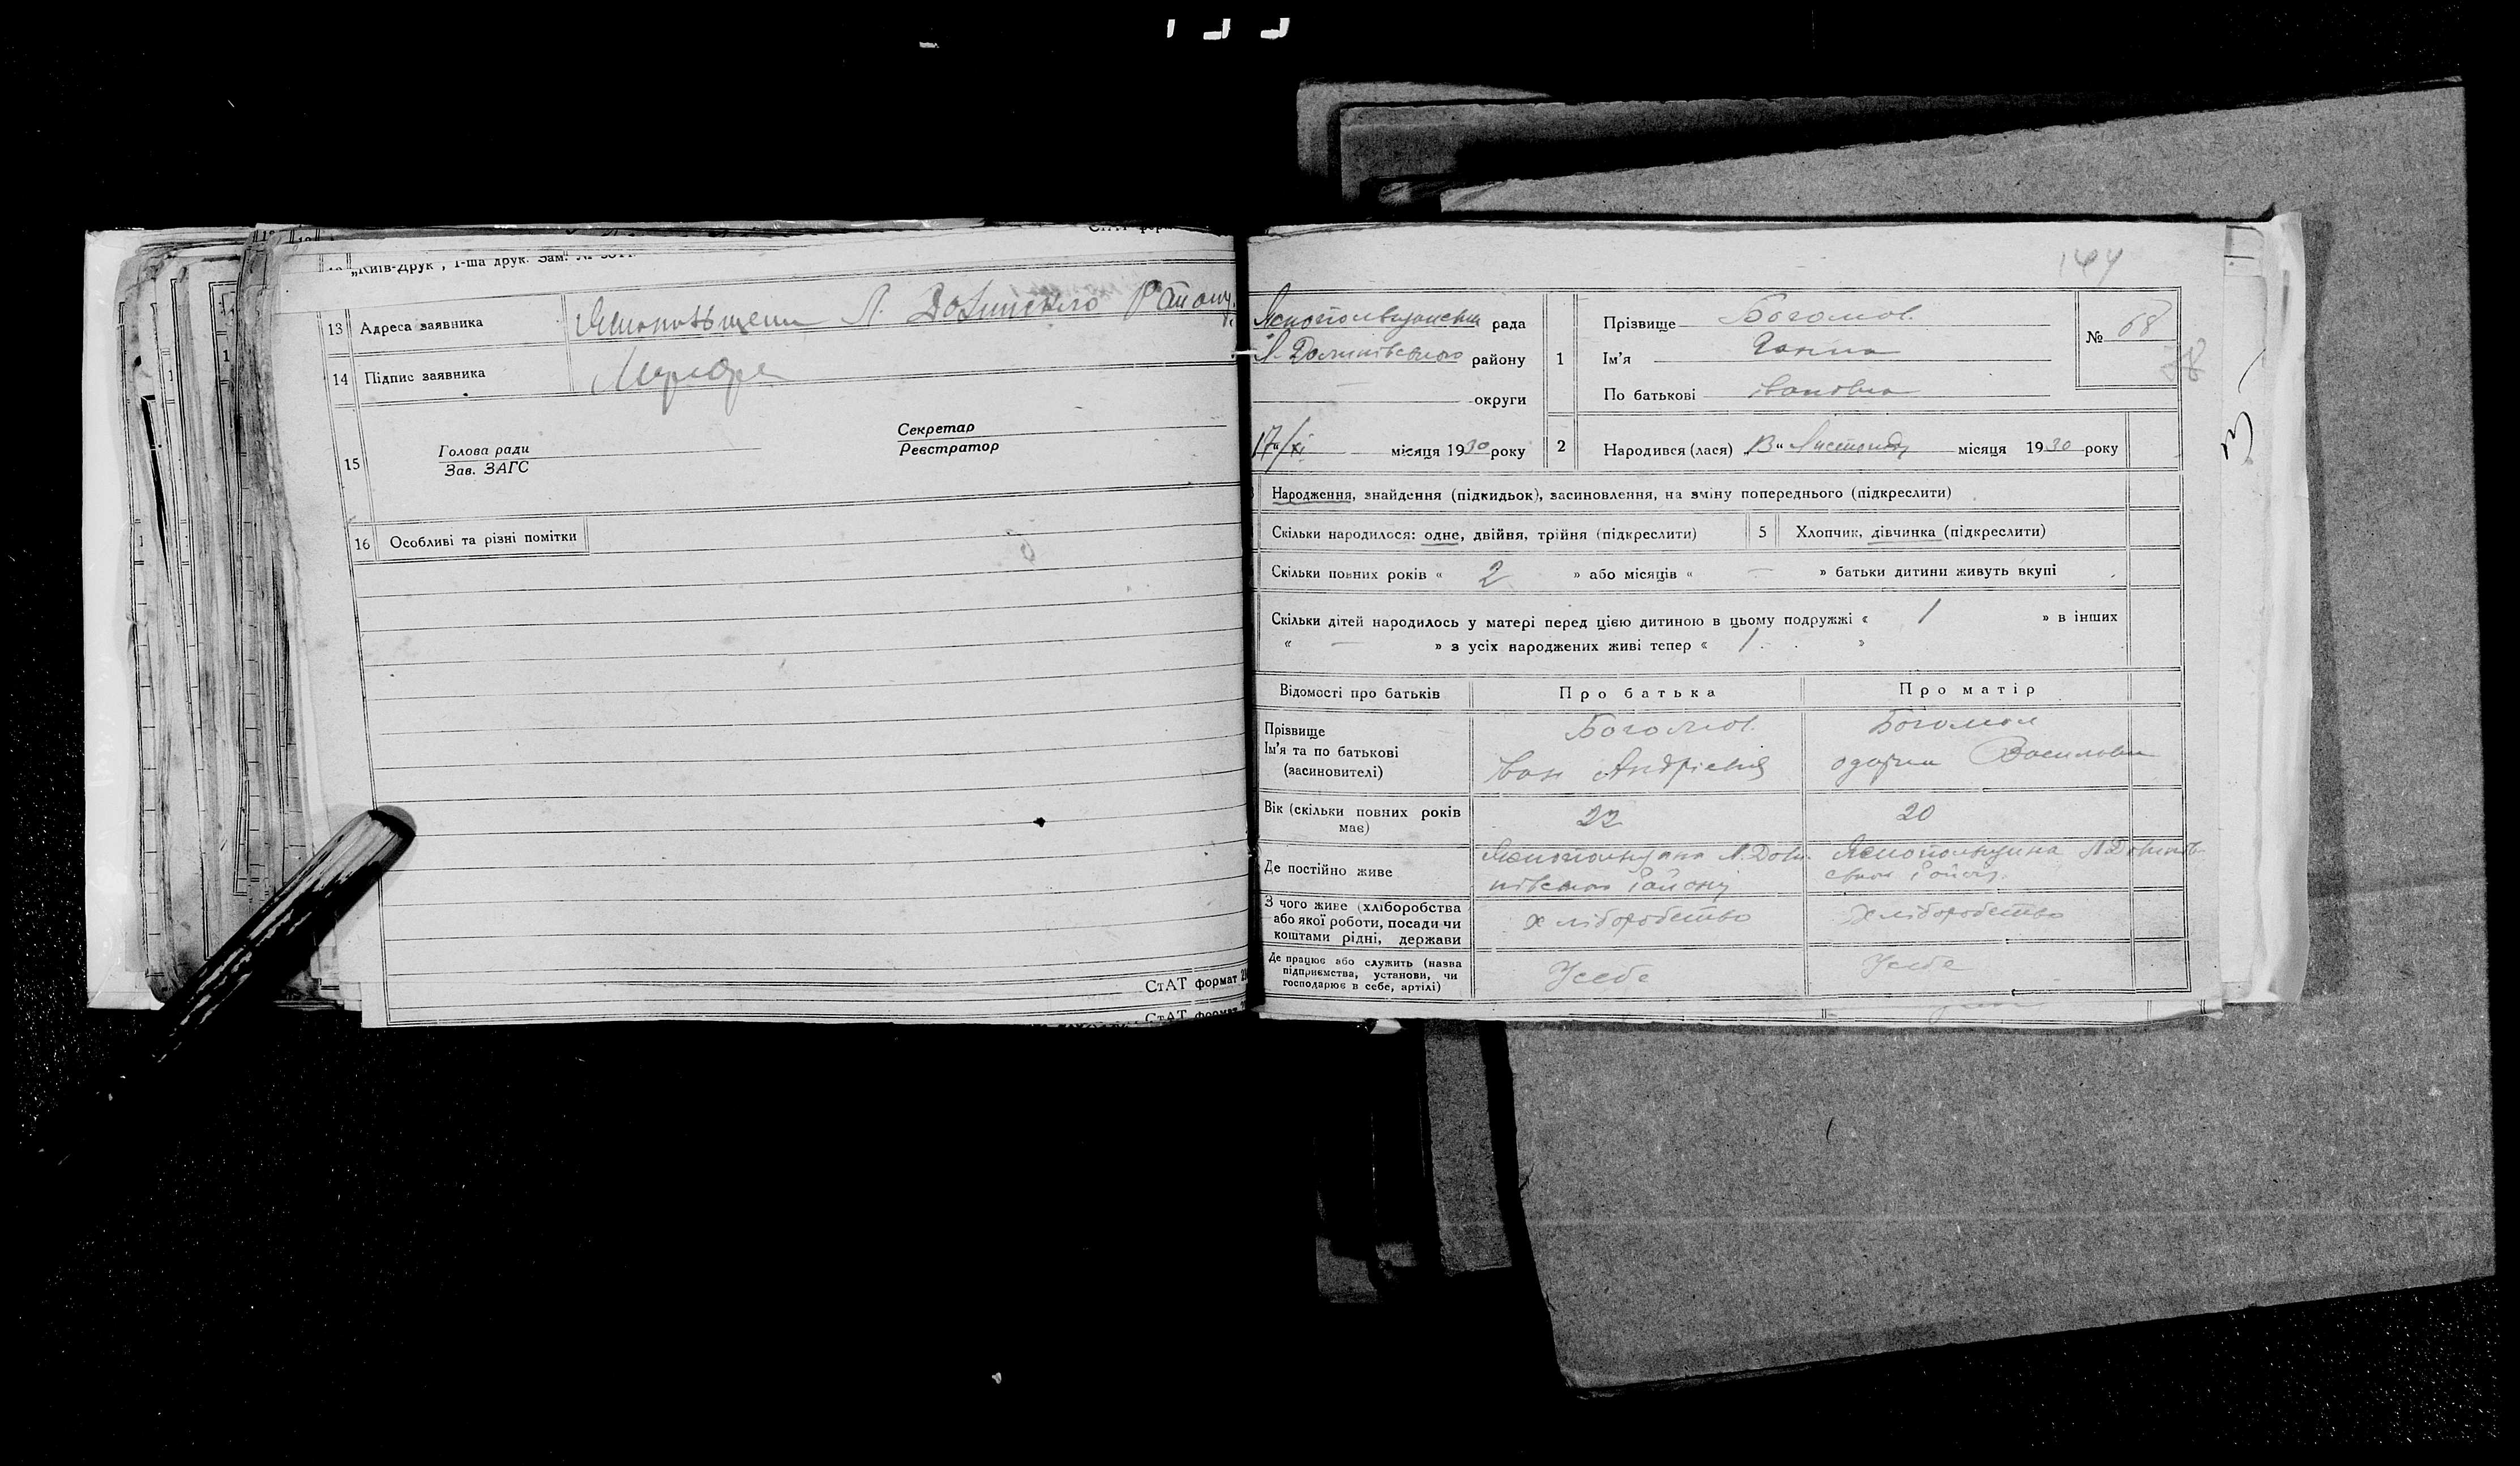 „Київ-Друк", 1-ша друк. Зам. №
13 Адреса заявника
14 Підпис заявника
15 Голова ради
Зав. ЗАГС
Секретар
Реєстратор
16 Особливі та різні помітки
СтАТ формат
СтАТ формат
144
рада
Л. Долинівського району
округи
17/XI місяця 1930 року
1 Прізвище Богомол
Ім'я Ганна
По батькові Івановна
№ 68
2 Народився (лася) 13 " Листопаду місяця 1930 року
Народження, знайдення (підкидьок), засиновлення, на зміну попереднього (підкреслити)
Скільки народилося: одне, двійня, трійня (підкреслити) 5 Хлопчик, дівчинка (підкреслити)
Скільки повних років « 2 » або місяців « — » батьки дитини живуть вкупі
Скільки дітей народилось у матері перед цією дитиною в цьому подружжі « 1 » в інших
« — » з усіх народжених живі тепер « 1 »
Відомості про батьків Про батька Про матір
Прізвище Богомол Богомол
Ім'я та по батькові Іван Андрієвич Василовна
(засиновителі)
Вік (скільки повних років 22 20
має)
Де постійно живе Яснопольщина
Району
З чого живе (хліборобства
або якої роботи, посади чи хліборобство хліборобство
коштами рідні, держави
Де працює або служить (назва
підприємства, установи, чи Усебе Усебе
господарює в себе, артілі)